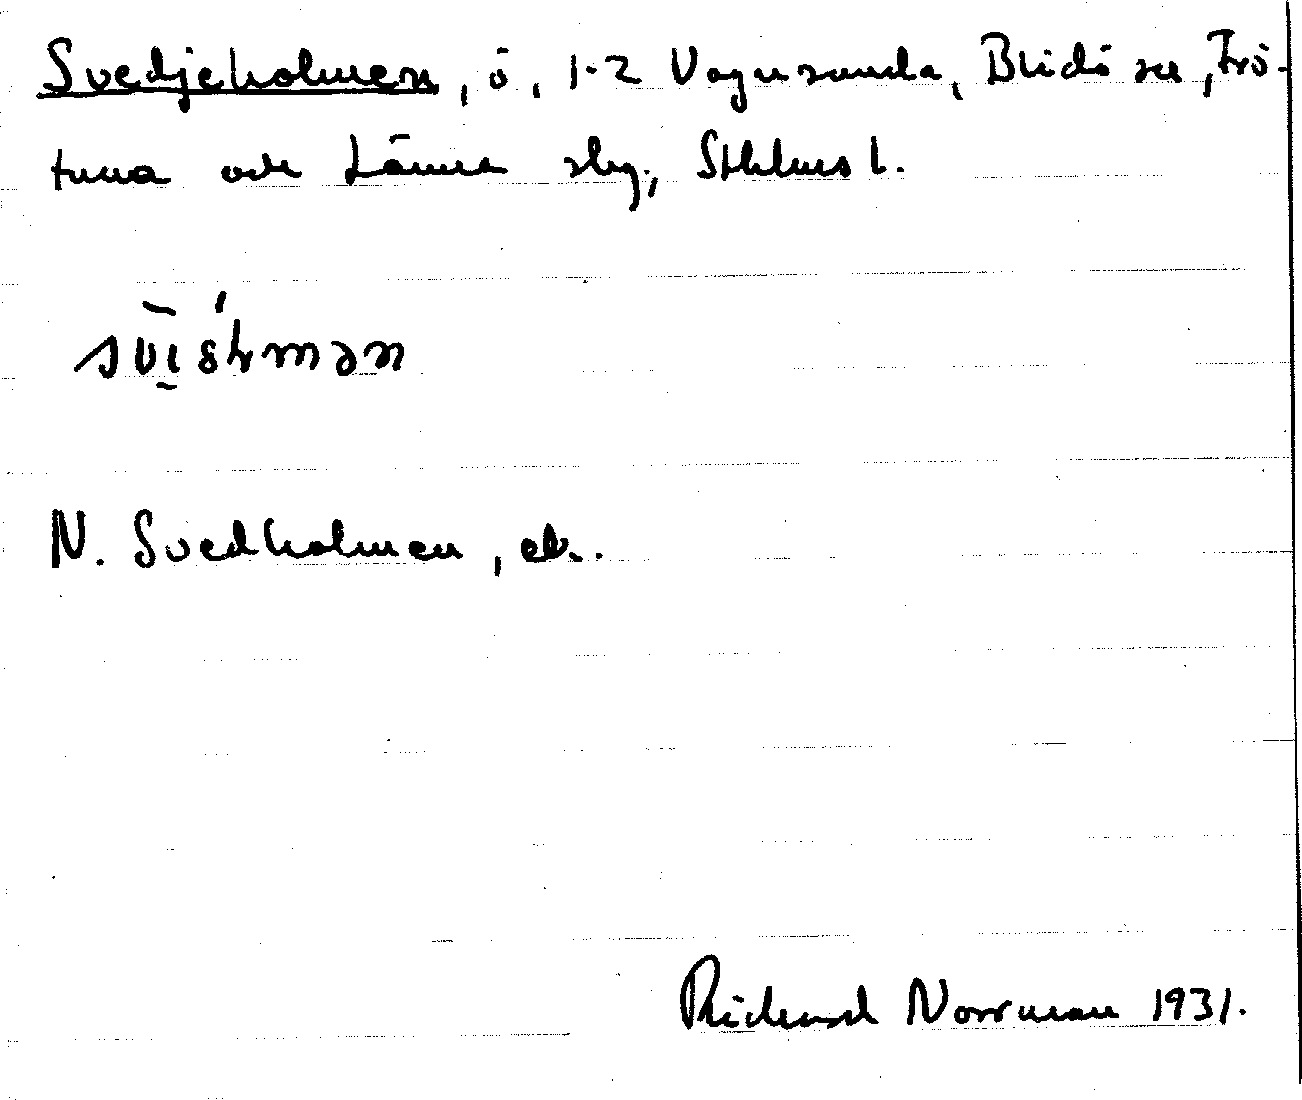 Svedjeholmen, ö, 1-2 Vagnsunda, Blidö sn, Frö-
tuna och Länna skg, Sthlms l.
N. Svedholmen, ek.
Rickard Norrman 1931.